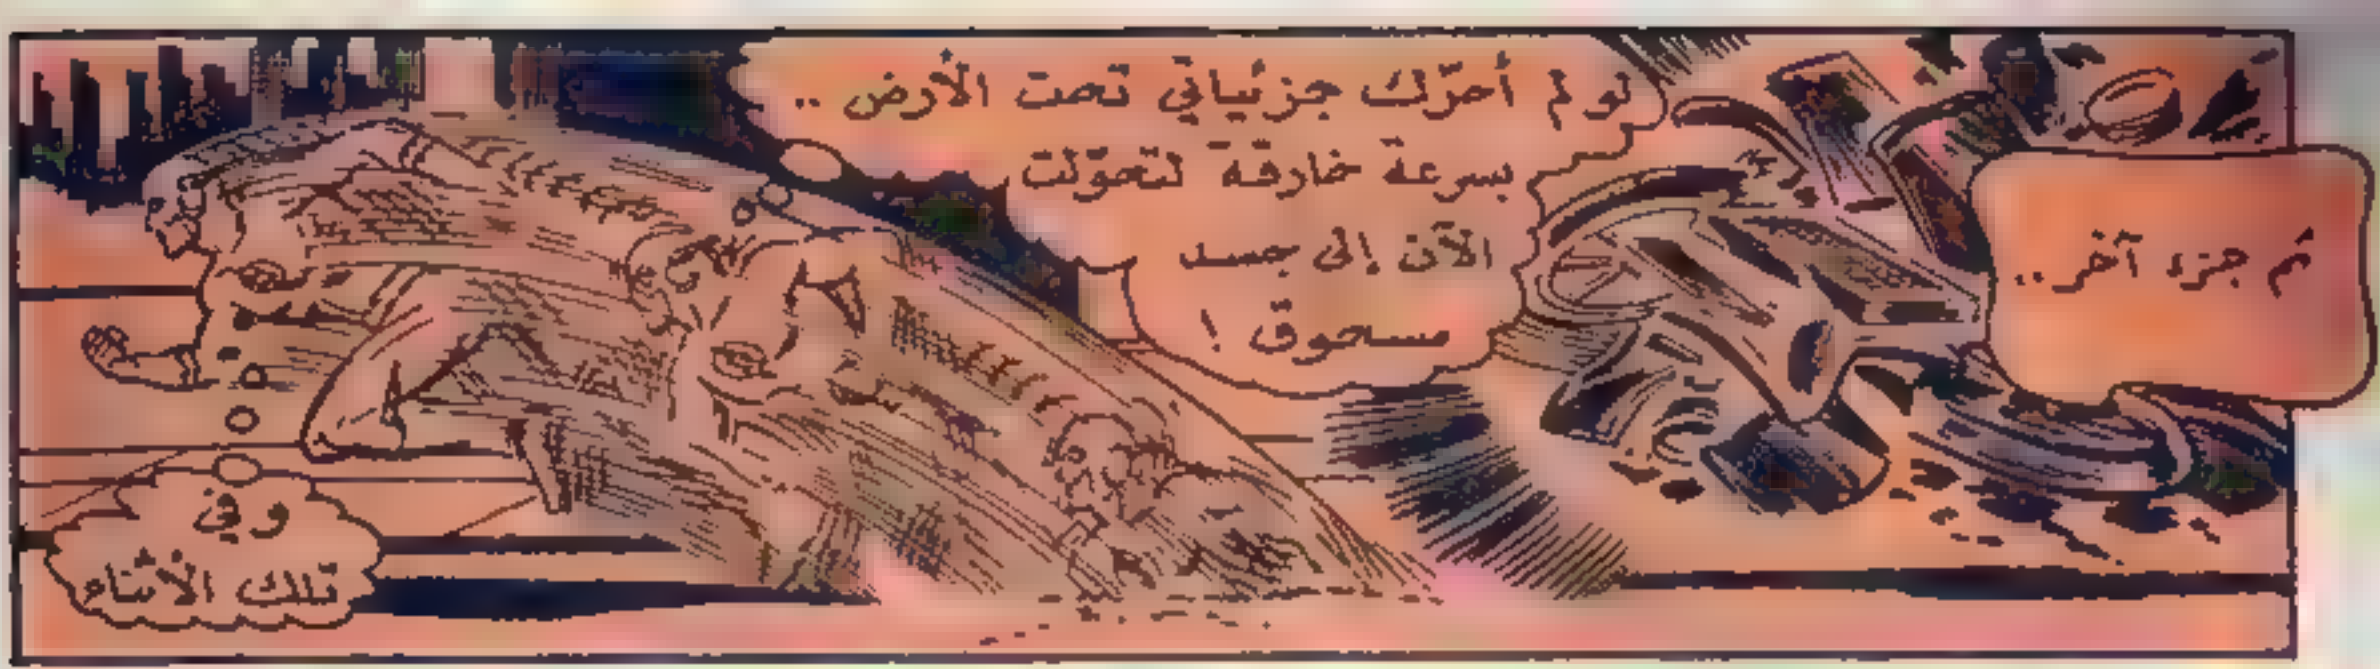 ثم جزء آخر..
لو لم أحرّك جزئياتي تحت الأرض ..
بسرعة خارقة لتحوّلت
الآن إلى جسد
مسحوق !
وفي
تلك الأثناء